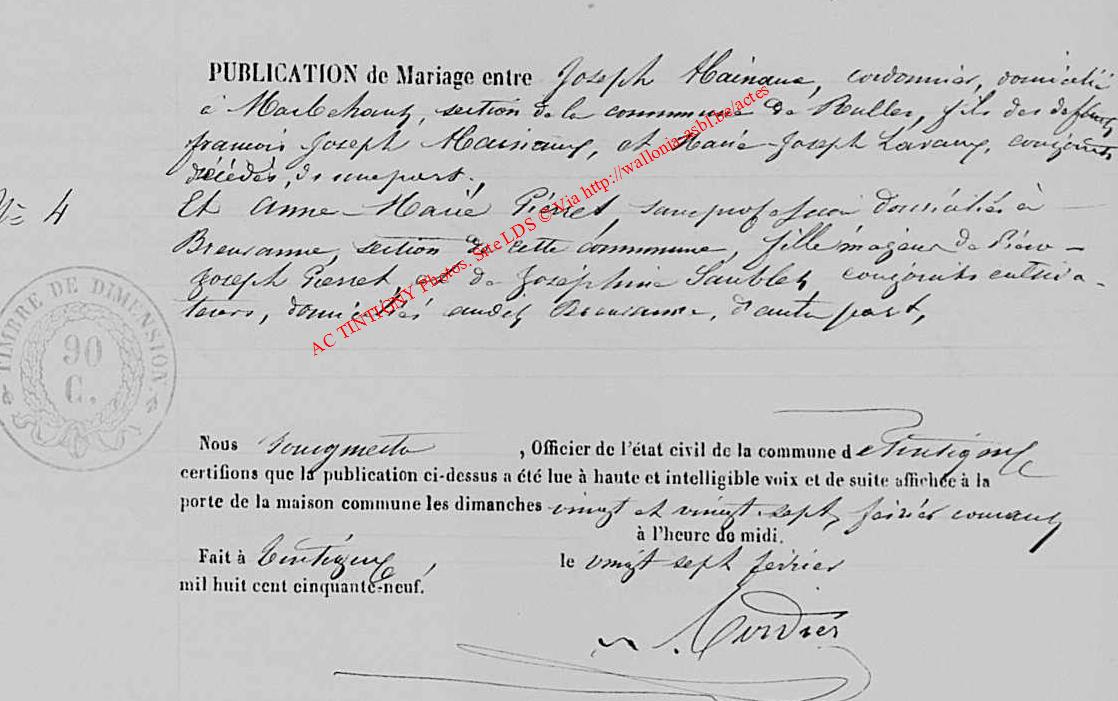 PUBLICATION de Mariage entre Joseph Hainaux, cordonnier, domicilié
à Marbehaux, section de la commune de Rulles, fils des defunts
francois Joseph Hainaux, et Marie-Joseph Lavaux, conjoints
décédés, de une part.,
N° 4
Et Anne-Marie Pierret, sans profession domiciliée à
Breuvanne, section de cette commune, fille majeure de Pierre-
Joseph Pierret, et de Joséphine conjoints cultiva-
teurs, domiciliés audit Breuvanne, d'autre part,
AC TINTIGNY Photos. Site LDS © Via http://wallonia-asbl.be/actes
TIMBRE DE DIMENSION.
90
C.
Nous soussigné , Officier de l'état civil de la commune de Tintigny
certifions que la publication ci-dessus a été lue à haute et intelligible voix et de suite affichée à la
porte de la maison commune les dimanches vingt et vingt-sept février courant
à l'heure de midi.
Fait à Tintigny, le vingt sept février
mil huit cent cinquante-neuf.